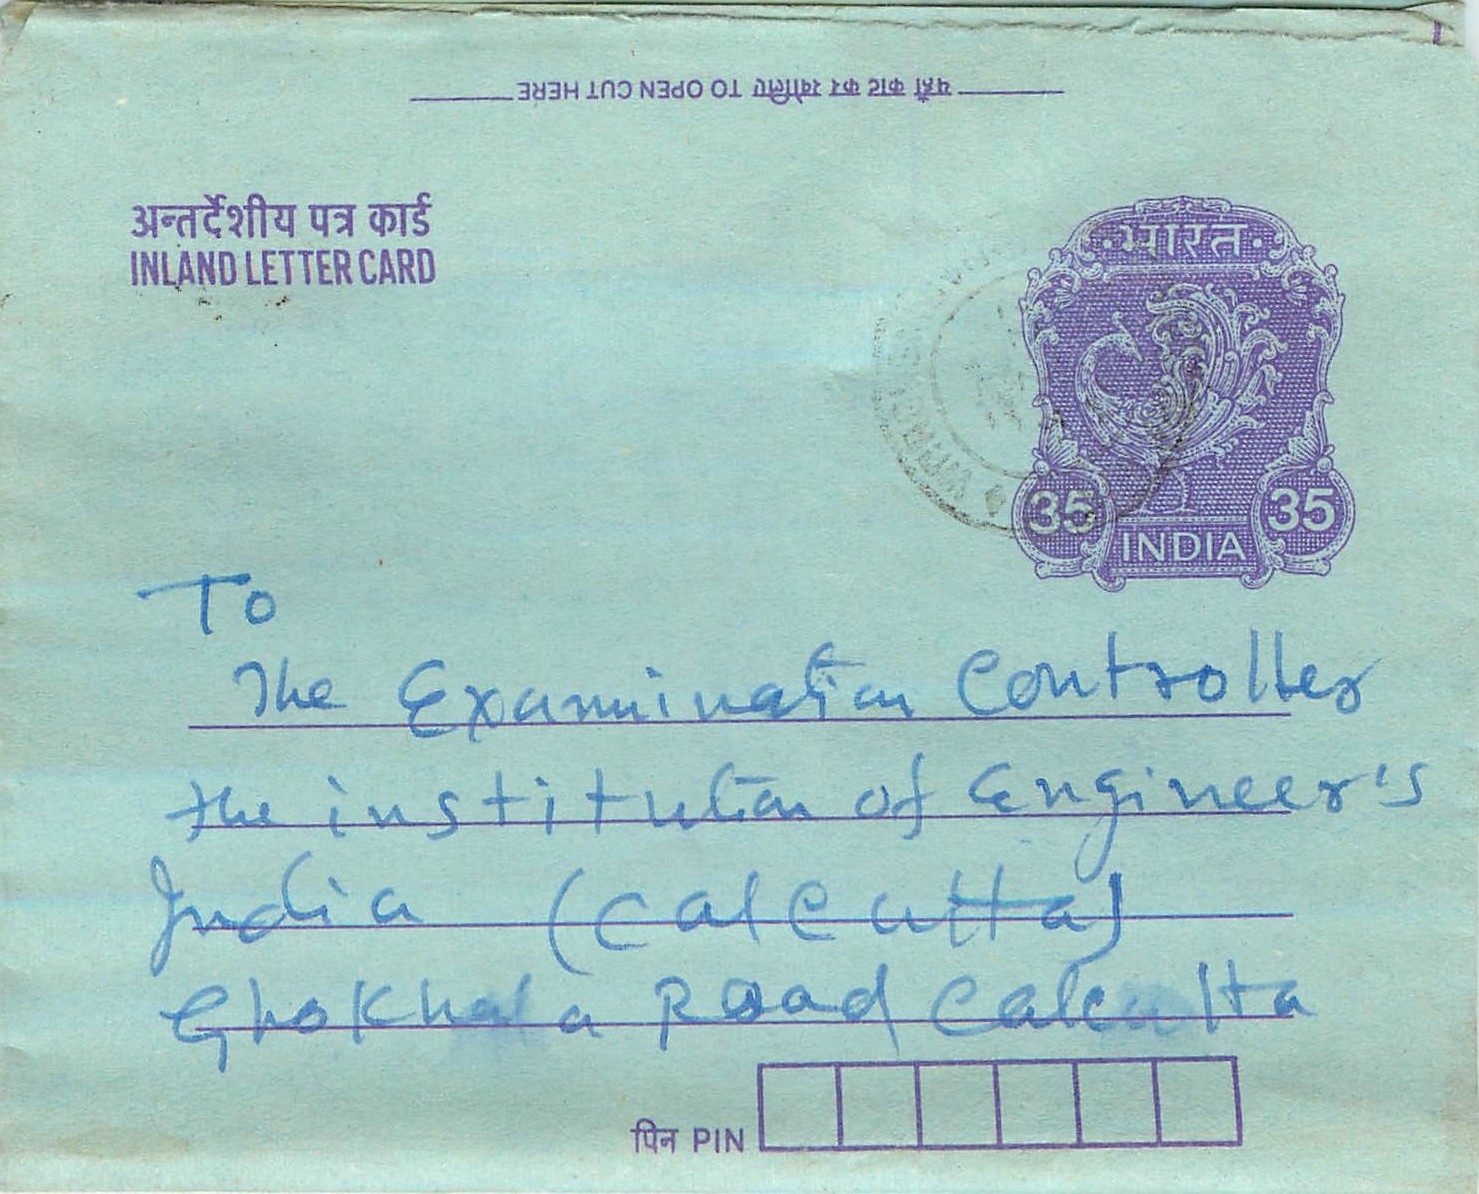 यहाँ काट कर खोलिए TO OPEN CUT HERE
अन्तर्देशीय पत्र कार्ड
INLAND LETTER CARD
भारत
35 35
INDIA
To
The Examination Controller
the institution of Engineer's
India (Calcutta)
Road Calcutta
पिन PIN